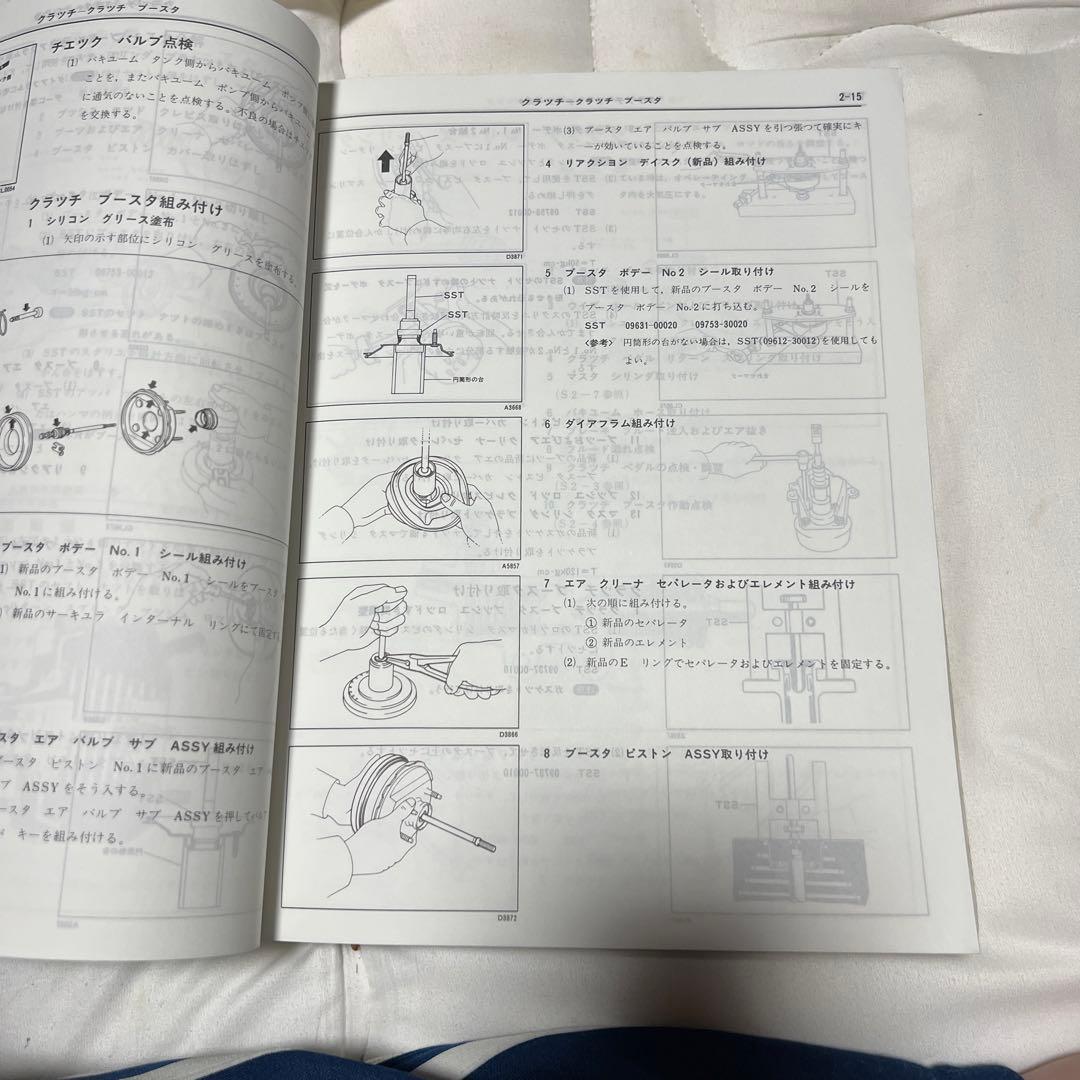 クラッチークラッチ ブースタ
チエック バルブ点検
(1) バキユーム タンク側からバキユーム ポンプ側
ことを，またバキユーム ポンプ側からバキユーム
に通気のないことを点検する。不良の場合はチエ
を交換する。
クラッチ ブースタ組み付け
1 シリコン グリース塗布
(1) 矢印の示す部位にシリコン グリースを塗布する。
ブースタ ボデー No.1 シール組み付け
1) 新品のブースタ ボデー No.1 シールをブースタ
No.1に組み付ける。
新品のサーキユラ インターナル リングにて固定す
スタ エア バルブ サブ ASSY組み付け
ブースタ ピストン No.1に新品のブースタ エア
ブ ASSYをそう入する。
ースタ エア バルブ サブ ASSYを押して
キーを組み付ける。
クラツチークラツチ ブースタ
2-15
(3) ブースタ エア バルブ サブ ASSYを引つ張つて確実にキ
ーが効いていることを点検する。
4 リアクション デイスク（新品）組み付け
D3871
5 ブースタ ボデー No2 シール取り付け
(1) SSTを使用して，新品のブースタ ボデー No.2 シールを
ブースタ ボデー No.2に打ち込む。
SST 09631-00020 09753-30020
<参考> 円筒形の台がない場合は，SST(09612-30012)を使用しても
よい。
SST
SST
円筒形の台
A3668
6 ダイアフラム組み付け
A5857
7 エア クリーナ セパレータおよびエレメント組み付け
(1) 次の順に組み付ける。
① 新品のセパレータ
② 新品のエレメント
(2) 新品のE リングでセパレータおよびエレメントを固定する。
D3866
8 ブースタ ピストン ASSY取り付け
D3872